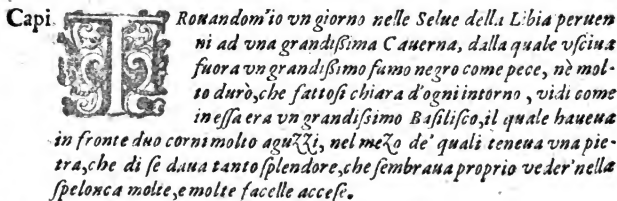 Capi. TRouandom'io vn giorno nelle Selue della Libia peruen
ni ad vna grandißima Cauerna, dalla quale vſciua
fuora vn grandißimo fumo negro come pece, nè mol-
to durò, che fattoſi chiara d'ogni intorno, vidi come
in eſſa era vn grandißimo Baſiliſco, il quale haueua
in fronte duo corni molto aguZZi, nel meZo de' quali teneua vna pie-
tra, che di ſe daua tanto ſplendore, che ſembraua proprio veder' nella
ſpelonca molte, e molte facelle acceſe.